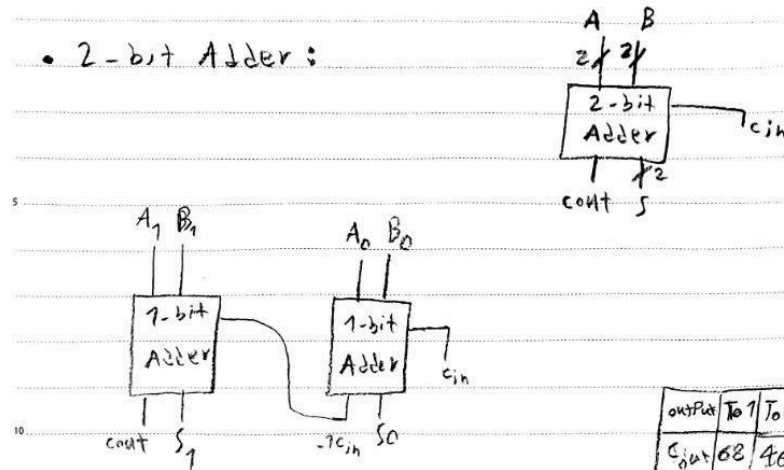 • 2-bit Adder:
A B
2 2
2-bit
Adder
cin
2
cout S
5
A1 B1
A0 B0
1-bit
Adder
1-bit
Adder
cin
cout S1
cin S0
10
output To 1 To
Cout 68